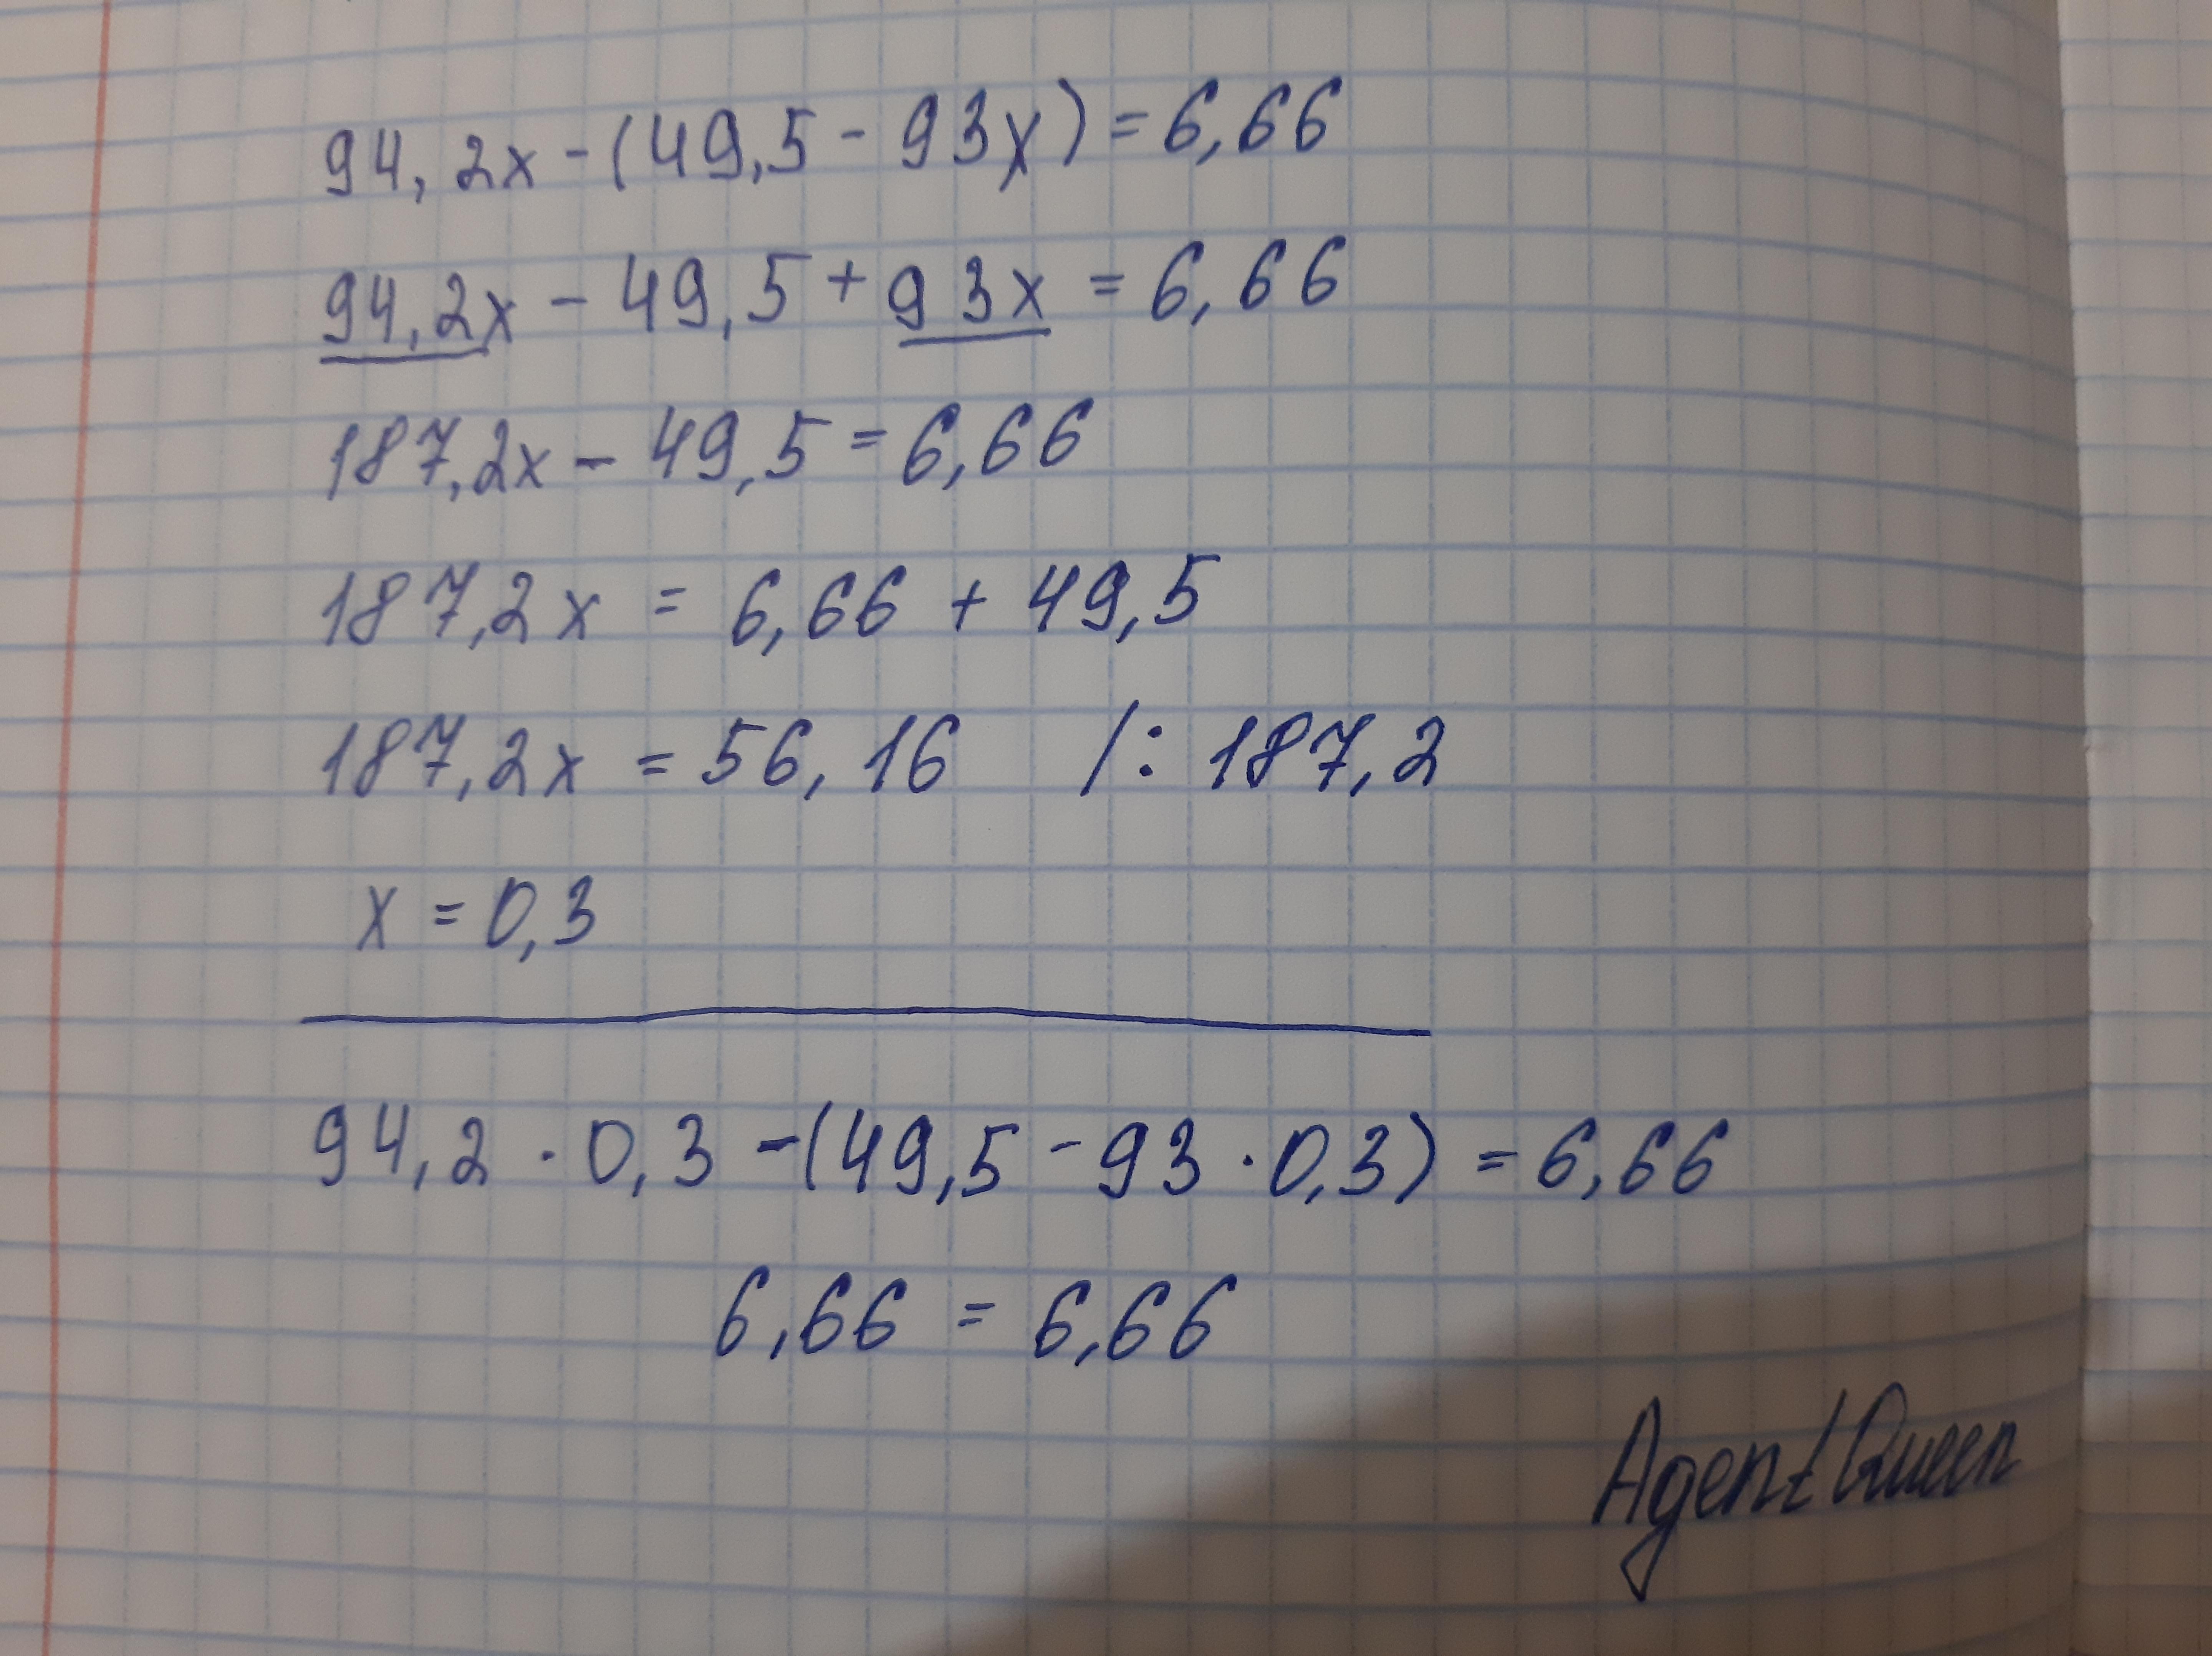 94,2x - (49,5 - 93x) = 6,66
94,2x - 49,5 + 93x = 6,66
187,2x - 49,5 = 6,66
187,2x = 6,66 + 49,5
187,2x = 56,16 /: 187,2
x = 0,3
94,2 · 0,3 - (49,5 - 93 · 0,3) = 6,66
6,66 = 6,66
AgentQueen